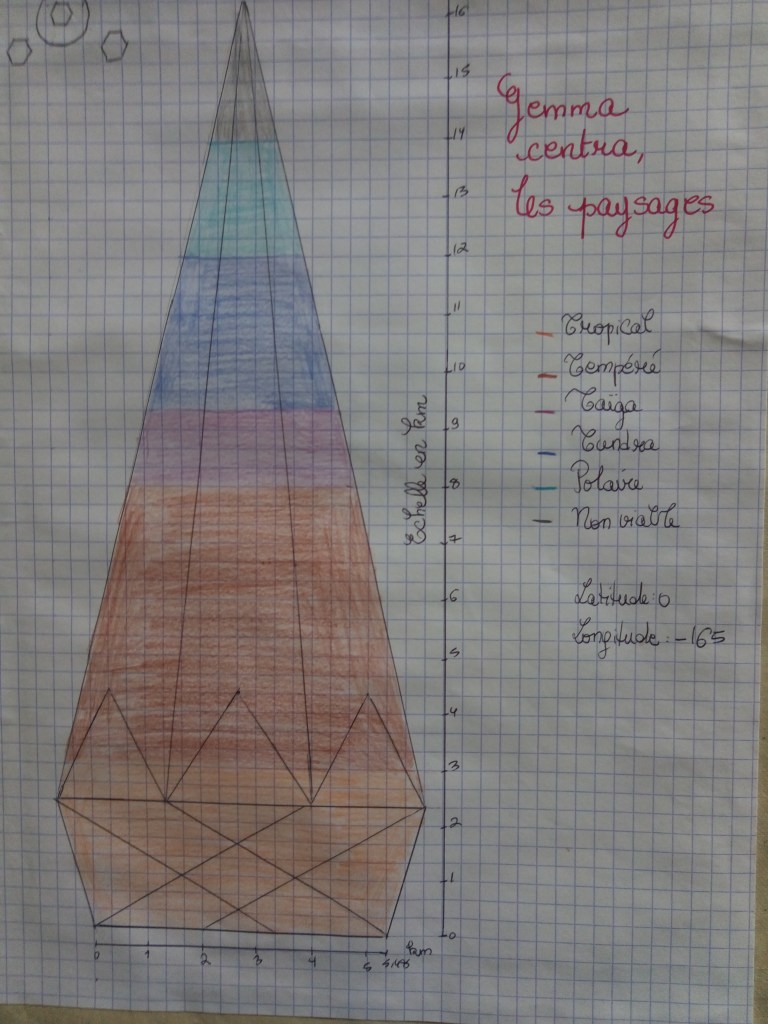 Gemma
centra,
les paysages
Tropical
Tempéré
Taïga
Tundra
Polaire
Non viable
Latitude : 0
Longitude : -165
Echelle en km
16
15
14
13
12
11
10
9
8
7
6
5
4
3
2
1
0
0 1 2 3 4 5
km